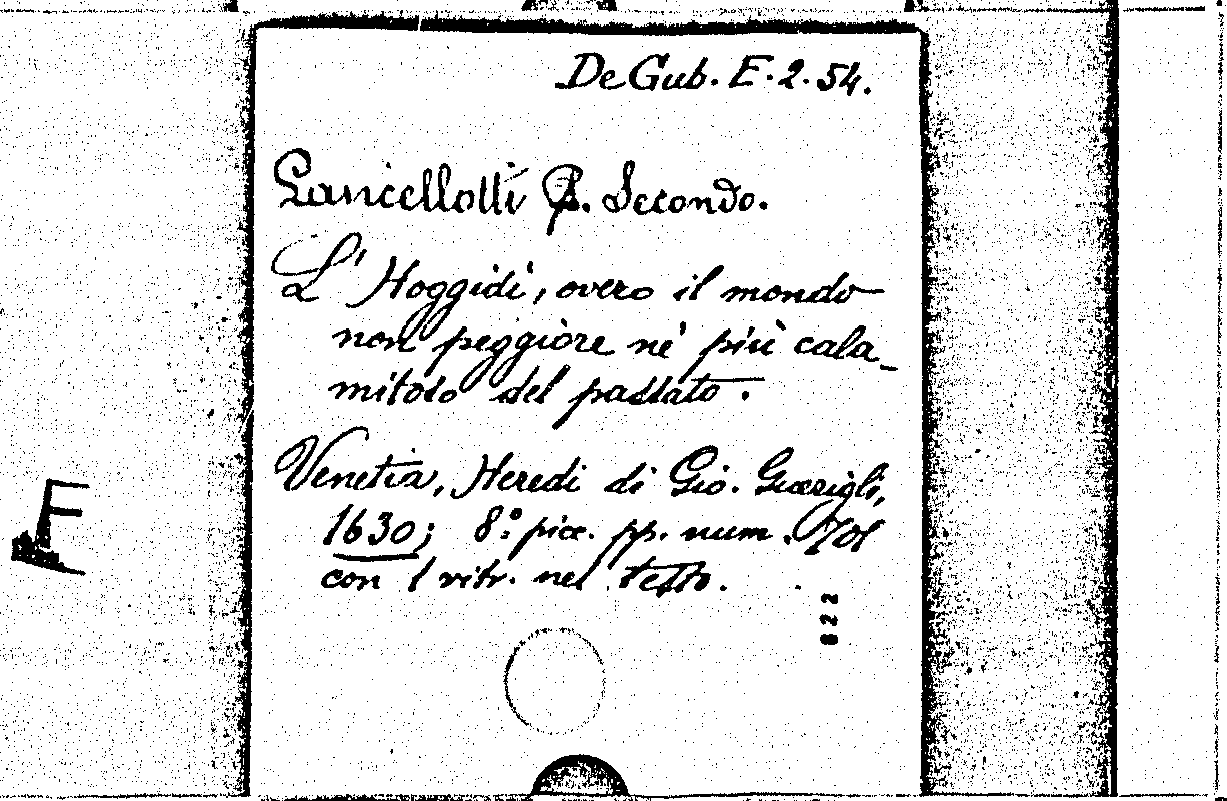 De Gub. E. 2. 54.
Lancellotti P. Secondo.
L' Hoggidì, overo il mondo
non peggiore nè più cala-
mitoso del passato.
Venetia, Heredi di Gio. Guerigli,
1630; 8.° picc. pp. num. 701
con 1 vitr. nel testo.
822
F